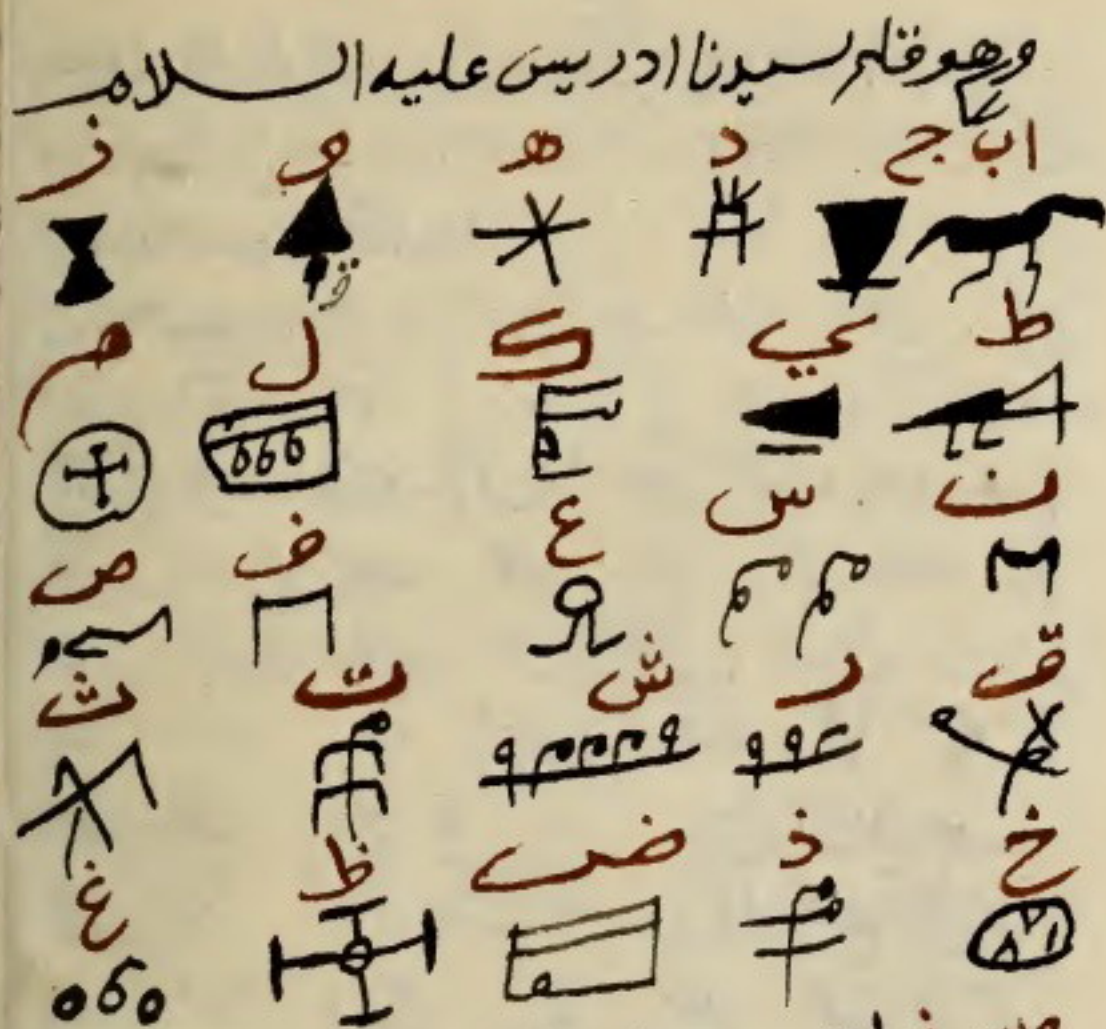 وهو قلم سيدنا ادريس عليه السلام
ا ب ج د ه و ز
ط ي ك ل م
ن س ع ف ص
ق ر ش ت ث
خ ذ ض ظ غ